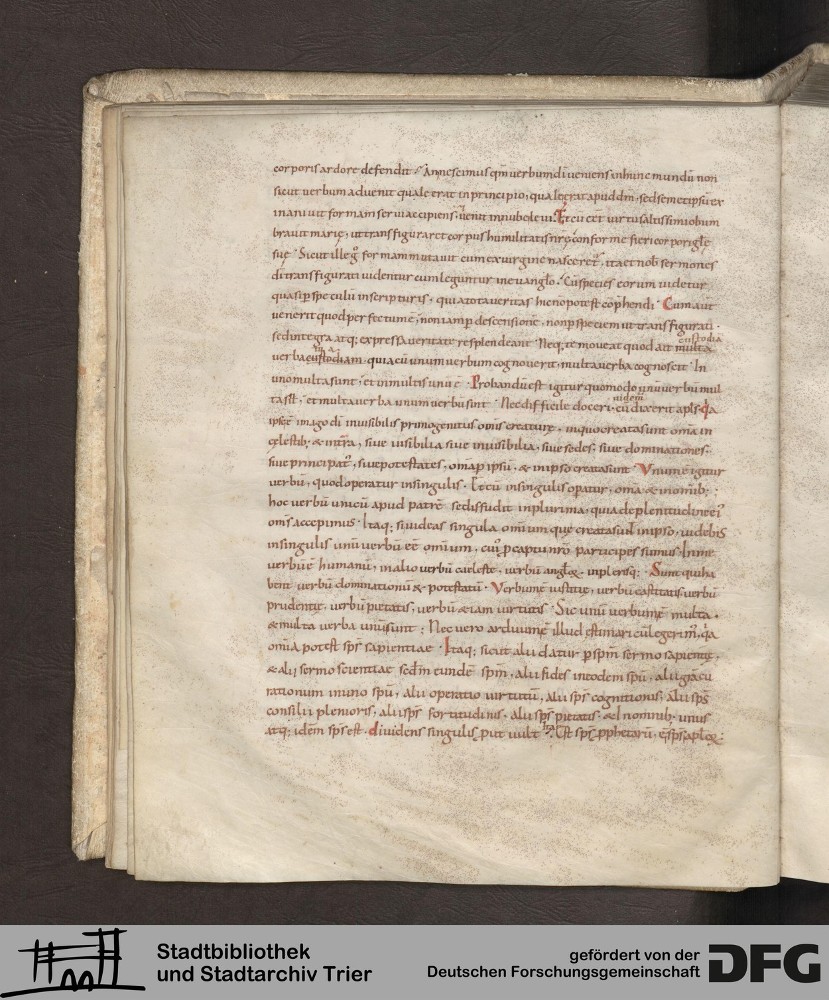 corporis ardore defendit. An nescimus qm̄ verbum dī veniens in hunc mundū non
sicut verbum advenit quale erat in principio, quale erat apud dm̄, sed semetipsū ex
inanivit formam servi accipiens, venit in nube levi. Et cū et ei virtus altissimi obum
bravit marię, ut transfiguraret corpus humilitatis nrę conforme fieri corpori glę
suę. Sicut ille g̊ formam mutavit cum ex virgine nasceret᷑, ita et nob sermones
dī transfigurati videntur cum leguntur in evanglo. Cū species eorum videtur
quasi p speculū in scripturis, quia tota veritas hic non potest cōp̄hendi. Cum aut̄
venerit quod perfectum ē, non iam p descensionē, non p speciem ut transfigurati.
sed integra atq; expressa veritate resplendeant. Neq; te moveat quod ait multa
custodia
verba custodiam. quia cū unum verbum cognoverit, multa verba cognoscit. In
uno multa sunt, et in multis unū ē. Probandū est igitur quomodo unū verbū mul
ta sit, et multa verba unum verbū sint. Nec difficile doceri, cū dixerit apls. q̇a
ipse ē imago dī invisibilis primogenitus om̄is creaturę, in quo creata sunt om̄ia in
cęlestib; & in tr̄ra, sive visibilia sive invisibilia, sive sedes, sive dominationes.
sive principat᷑, sive potestates, om̄ia p ipsū, & in ipso creata sunt. Vnum ē igitur
verbū, quod operatur in singulis. Et cū in singulis opatur, om̄ia & in om̄ib;.
hoc verbū unicū apud patrē sed isfudit in plurima, quia de plenitudine ei᷑
om̄s accepimus. Itaq; si videas singula om̄ium que creata sunt in ipso, videbis
in singulis unū verbū eē om̄ium, cui᷑ p captu nrō participes sumus. In me
verbū ē humanū, in alio verbū caeleste, verbū anglox, in plerisq;. Sunt qui ha
bent verbū dominationū & potestatū. Verbum ē iustitię, verbū castitatis, verbū
prudentię, verbū pietatis, verbū etiam virtutis. Sic unū verbum ē multa.
& multa verba unū sunt. Nec vero arduum ē illud estimari cū legerim᷑, q̇a
om̄ia potest sp̄s sapientiae. Itaq; sicut alii datur p sp̄m sermo sapientię,
& alii sermo scientiae sedm̄ eundē sp̄m, alii fides in eodem sp̄u, alii gra cu
rationum in uno sp̄u, alii operatio virtutū, alii sp̄s cognitionis, alii sp̄s
consilii plenioris, alii sp̄s fortitudinis, alii sp̄s pietatis. & In om̄ib; unus
atq; idem sp̄s est. dividens singulis put vult. Est sp̄s pphetarū, ē sp̄s aplox.
Stadtbibliothek
und Stadtarchiv Trier
gefördert von der
Deutschen Forschungsgemeinschaft
DFG